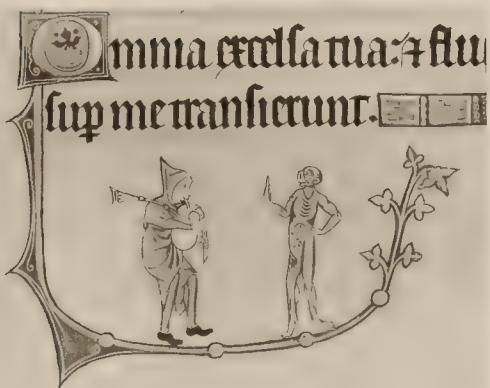 Omnia excelsa tua: ⁊ flu
sup me transierunt.